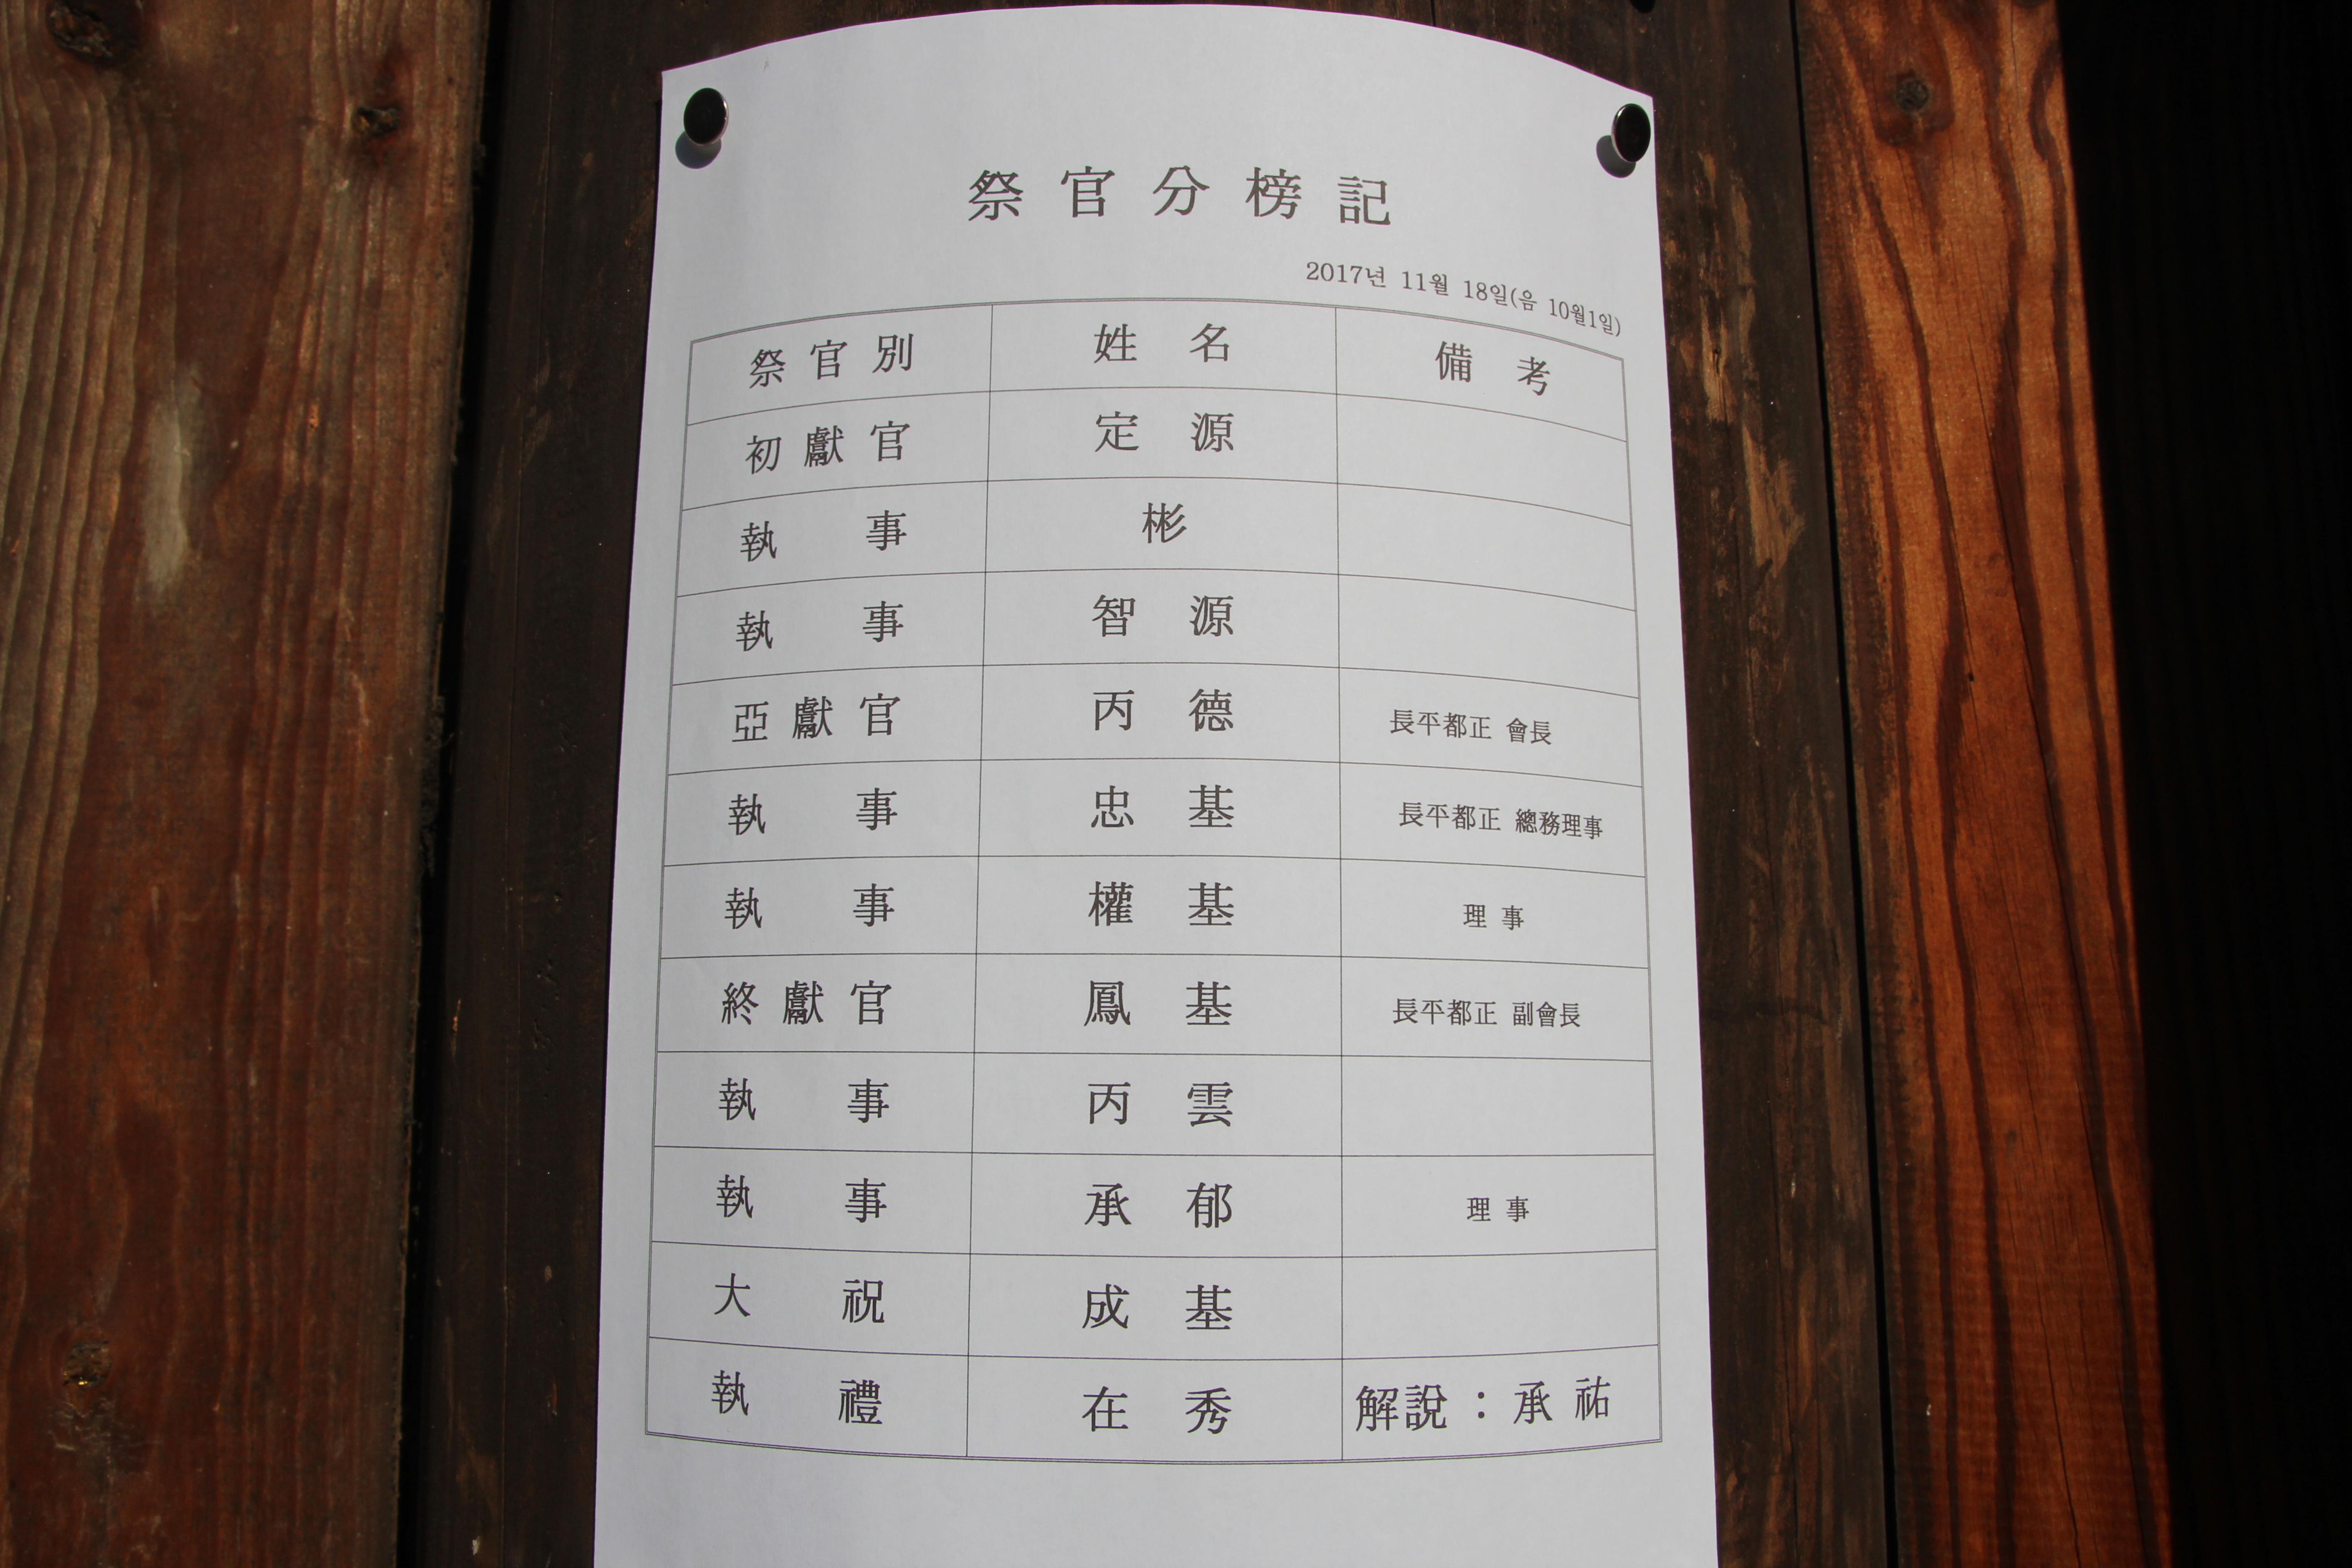 祭官分榜記
2017년 11월 18일(음 10월1일)
祭官別 姓名 備考
初獻官 定源
執事 彬
執事 智源
亞獻官 丙德 長平都正 會長
執事 忠基 長平都正 總務理事
執事 權基 理事
終獻官 鳳基 長平都正 副會長
執事 丙雲
執事 承郁 理事
大祝 成基
執禮 在秀 解說 : 承祐